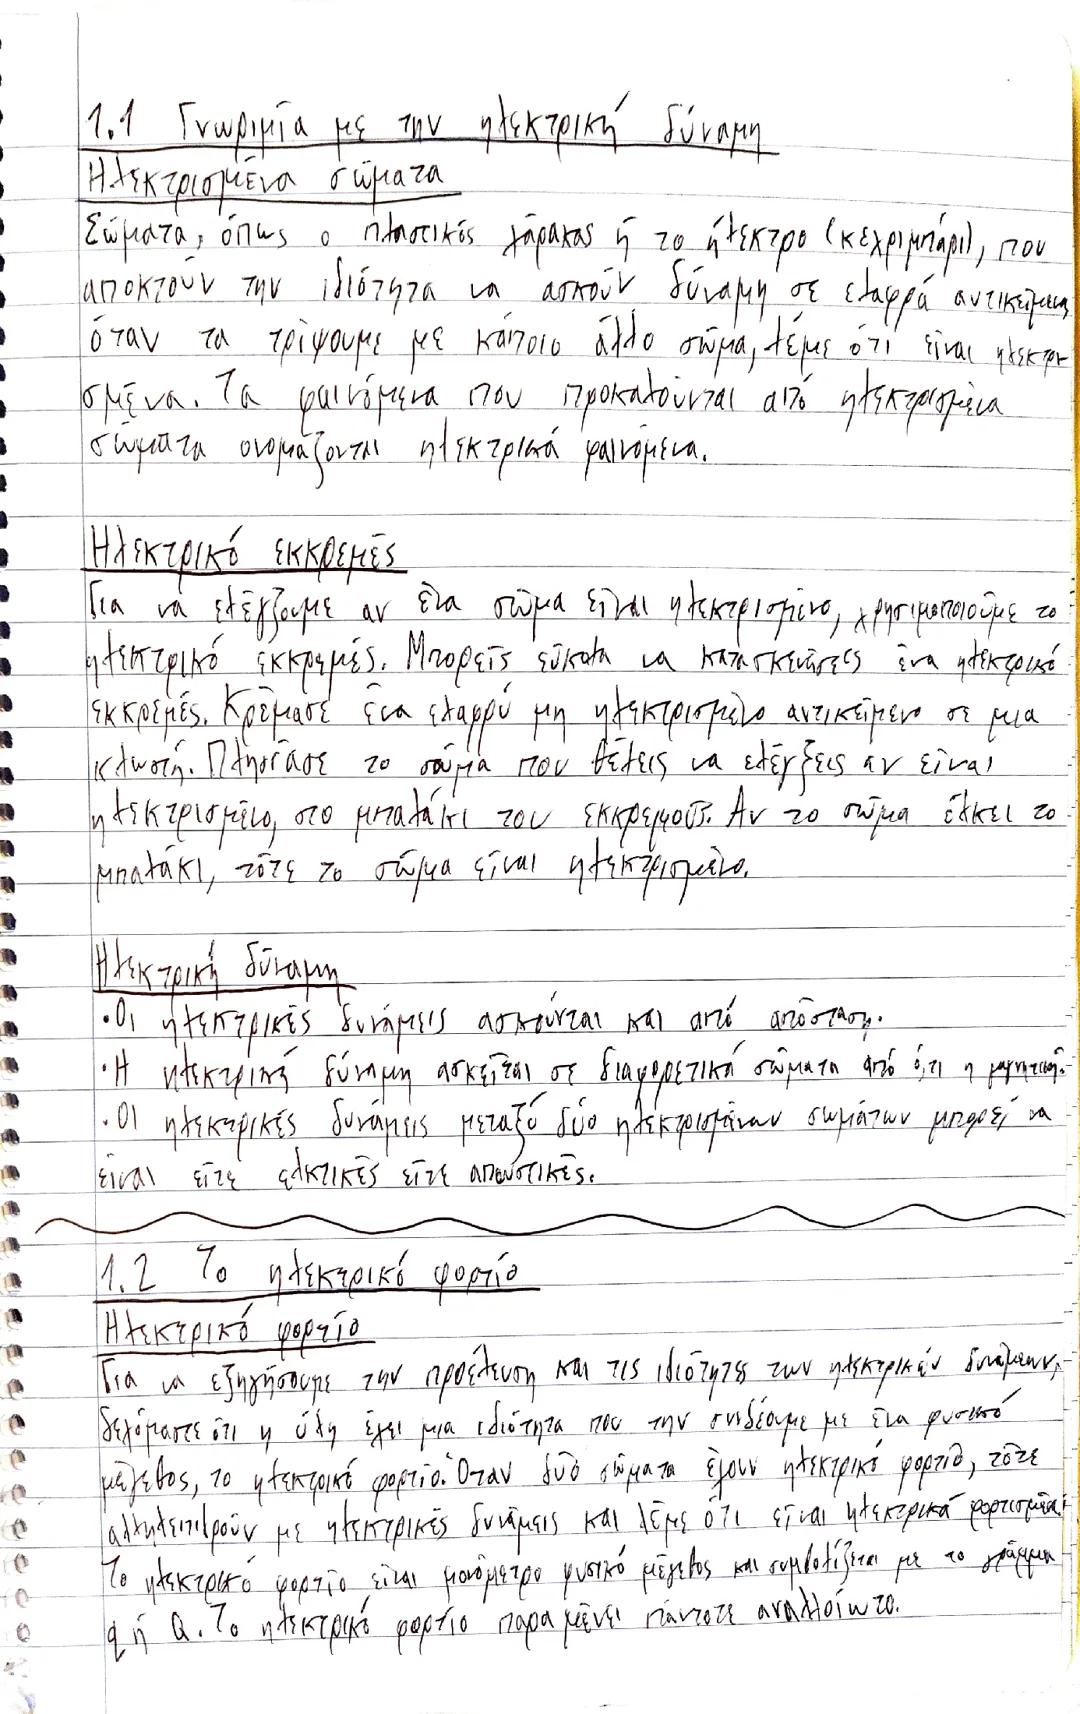 1.1 Γνωριμία με την ηλεκτρική δύναμη
Ηλεκτρισμένα σώματα
Σώματα, όπως ο πλαστικός χάρακας ή το ήλεκτρο (κεχριμπάρι), που
αποκτούν την ιδιότητα να ασκούν δύναμη σε ελαφρά αντικείμενα,
όταν τα τρίψουμε με κάποιο άλλο σώμα, λέμε ότι είναι ηλεκτρι
σμένα. Τα φαινόμενα που προκαλούνται από ηλεκτρισμένα
σώματα ονομάζονται ηλεκτρικά φαινόμενα.
Ηλεκτρικό εκκρεμές
Για να ελέγξουμε αν ένα σώμα είναι ηλεκτρισμένο, χρησιμοποιούμε το
ηλεκτρικό εκκρεμές. Μπορείς εύκολα να κατασκευάσεις ένα ηλεκτρικό
εκκρεμές. Κρέμασε ένα ελαφρύ μη ηλεκτρισμένο αντικείμενο σε μια
κλωστή. Πλησίασε το σώμα που θέλεις να ελέγξεις αν είναι
ηλεκτρισμένο, στο μπαλάκι του εκκρεμούς. Αν το σώμα έλκει το
μπαλάκι, τότε το σώμα είναι ηλεκτρισμένο.
Ηλεκτρική δύναμη
·Οι ηλεκτρικές δυνάμεις ασκούνται και από απόσταση.
·Η ηλεκτρική δύναμη ασκείται σε διαφορετικά σώματα από ό,τι η μαγνητική.
·Οι ηλεκτρικές δυνάμεις μεταξύ δύο ηλεκτρισμένων σωμάτων μπορεί να
είναι είτε ελκτικές είτε απωστικές.
1.2 Το ηλεκτρικό φορτίο
Ηλεκτρικό φορτίο
Για να εξηγήσουμε την προέλευση και τις ιδιότητες των ηλεκτρικών δυνάμεων,
δεχόμαστε ότι η ύλη έχει μια ιδιότητα που την συνδέουμε με ένα φυσικό
μέγεθος, το ηλεκτρικό φορτίο. Όταν δύο σώματα έχουν ηλεκτρικό φορτίο, τότε
αλληλεπιδρούν με ηλεκτρικές δυνάμεις και λέμε ότι είναι ηλεκτρικά φορτισμένα.
Το ηλεκτρικό φορτίο είναι μονόμετρο φυσικό μέγεθος και συμβολίζεται με το γράμμα
q ή Q. Το ηλεκτρικό φορτίο παραμένει πάντοτε αναλλοίωτο.